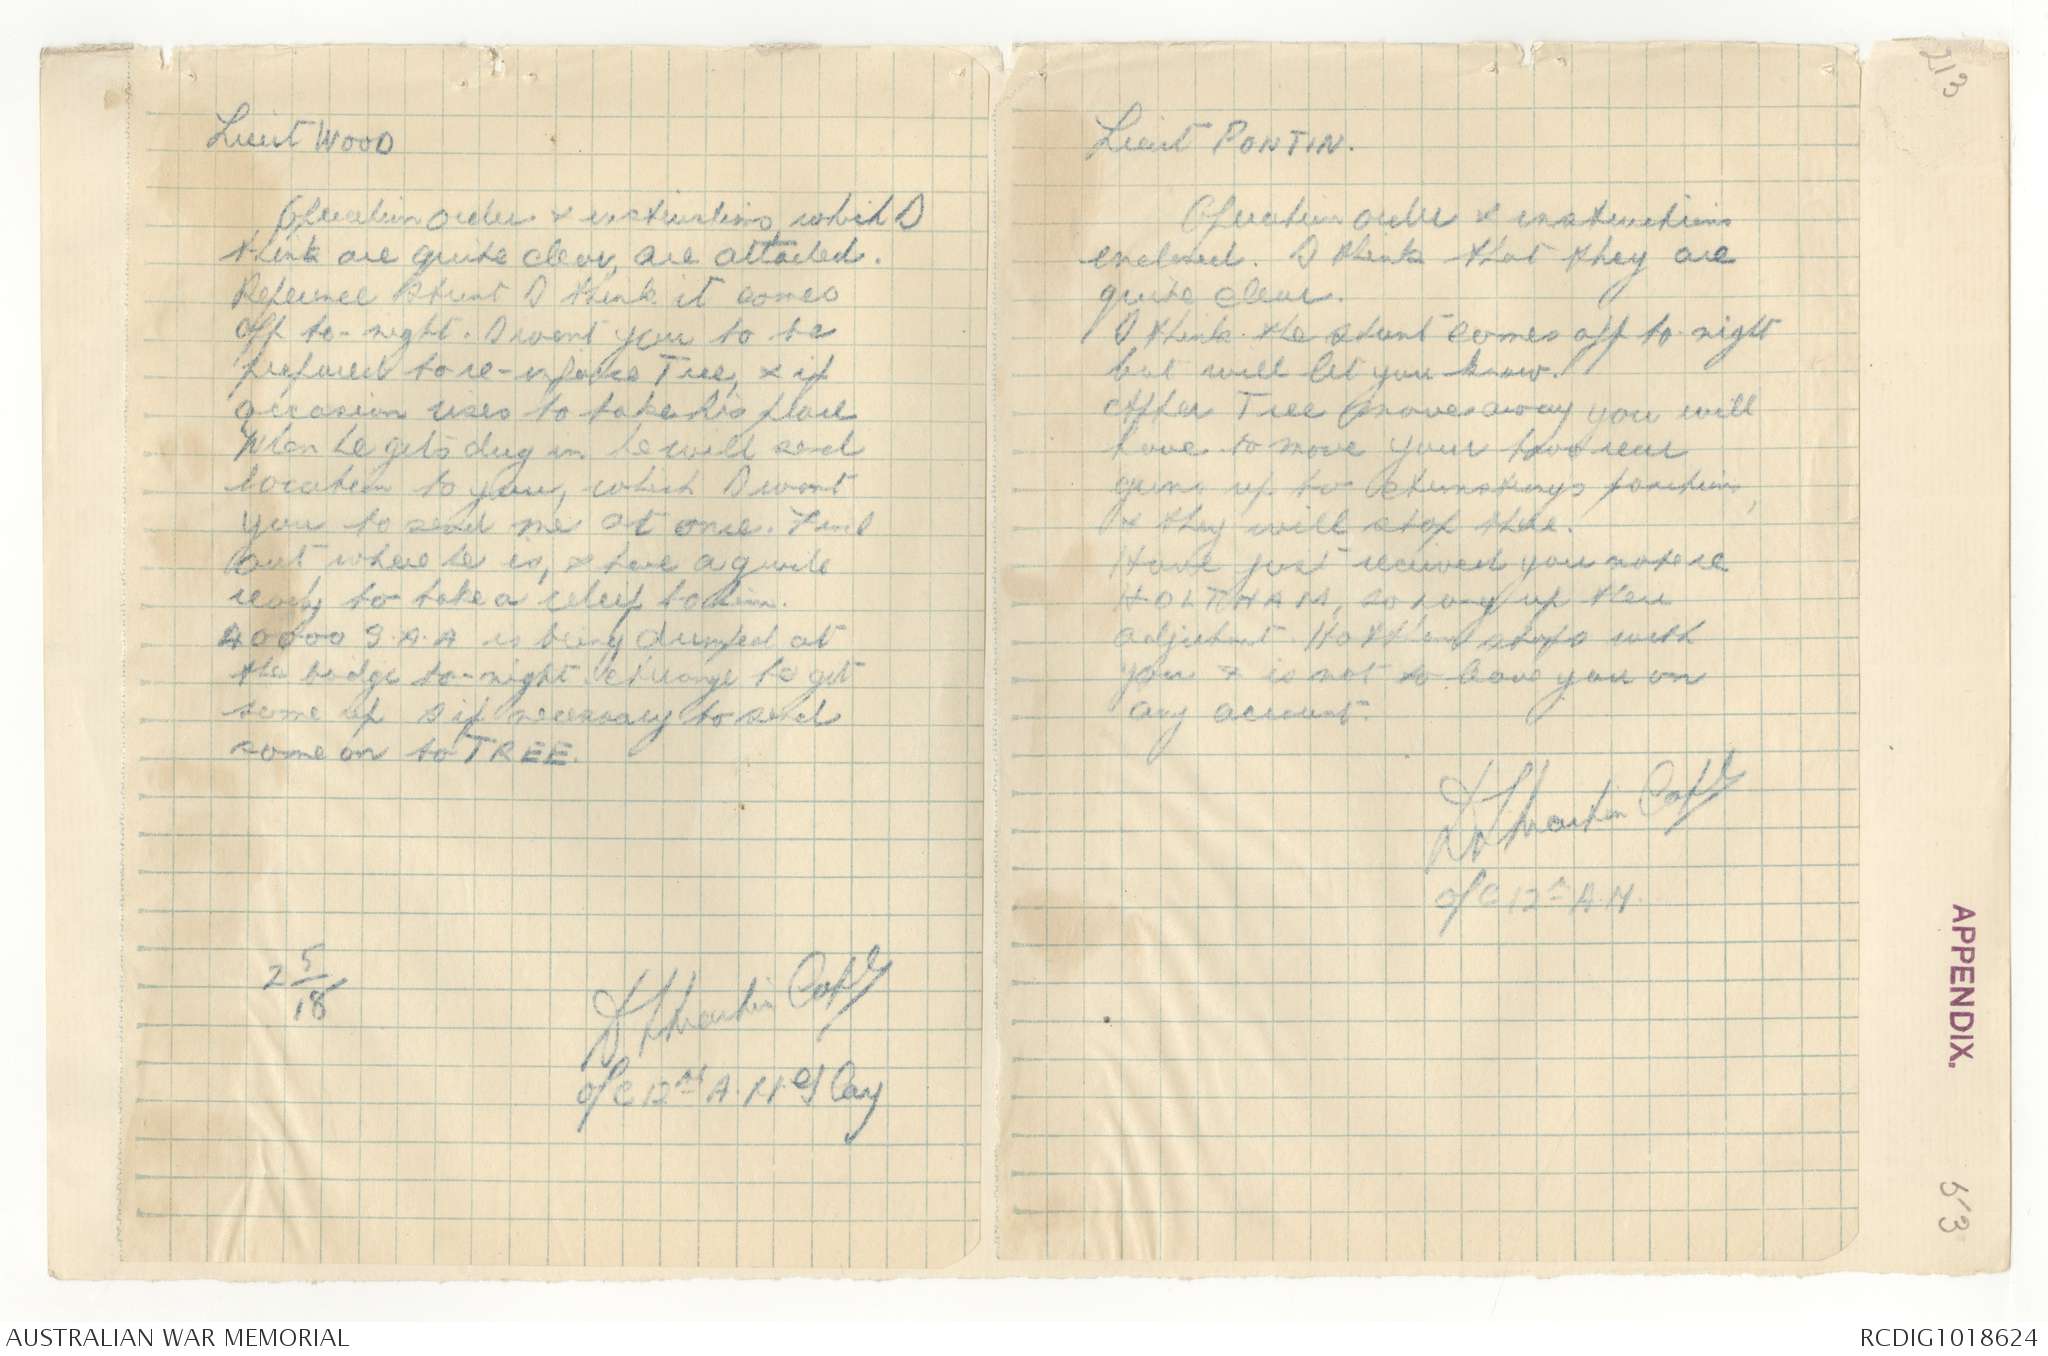 Lieut WOOD
Operation order & instructions, which I
think are quite clear, are attached.
Reference Stunt I think it comes
off to-night. I want you to be
prepared to re-inforce Tree, & if
occasion rises to take his place
When he gets dug in he will send
location to you, which I want
you to send me at once. Find
out where he is, & have a guide
ready to take a relief to him.
40000 S.A.A is being dumped at
the bridge to-night. Arrange to get
some up & if necessary to send
some on to TREE.
2 5/18
Martin Capt
O/C 12th A.M.G Coy
Lieut PONTIN.
Operation order & instructions
enclosed. I think that they are
quite clear.
I think the stunt comes off to-night
but will let you know.
After Tree moves away you will
have to move your two rear
guns up to positions,
& they will stop there.
Have just received your note re
HOLTHAM, so rang up their
adjutant. stops with
you & is not to leave you on
any account.
Martin Capt
O/C 12th A.M.
213
APPENDIX.
6/3
AUSTRALIAN WAR MEMORIAL
RCDIG1018624